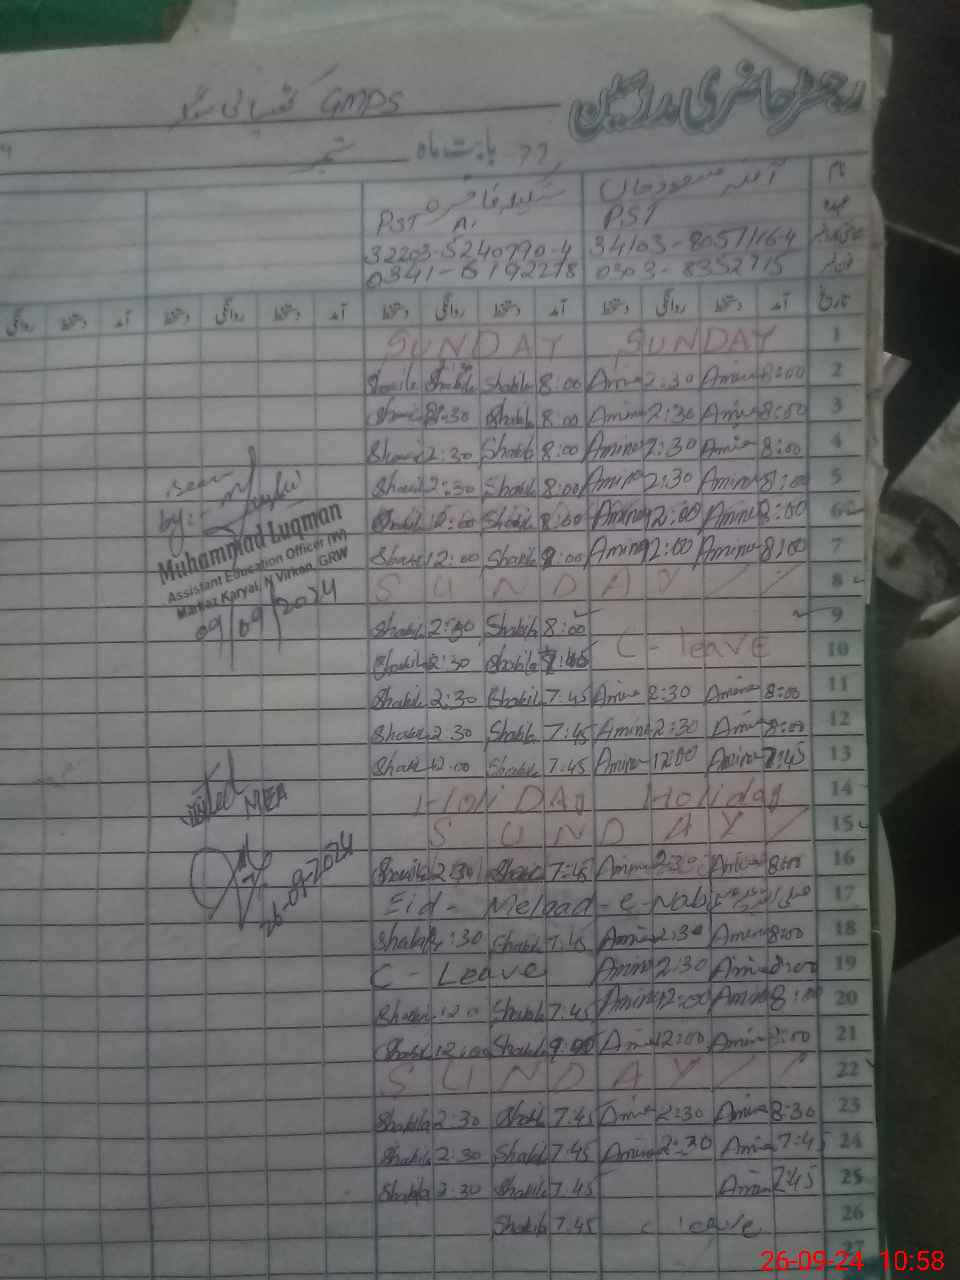 رجسٹر حاضری مدرسین
GMPS
بابت ماہ ستمبر
نام آمنہ مسعود خان شکیلہ فاخرہ
عہدہ PST PST
34103-8057116-4 32203-5240790-4
0303-8352715 0341-6192278
تاریخ آمد دستخط روانگی دستخط آمد دستخط روانگی دستخط آمد دستخط روانگی دستخط آمد روانگی
SUNDAY SUNDAY 1
Shakila 8:00 Amina 2:30 Amina 8:00 2
2:30 Shakila 8:00 Amina 2:30 Amina 8:00 3
2:30 Shakila 8:00 Amina 2:30 Amina 8:00 4
2:30 Shakila 8:00 Amina 2:30 Amina 8:00 5
12:00 Shakila 8:00 Amina 12:00 Amina 8:00 6
Shakila 12:00 Shakila 8:00 Amina 12:00 Amina 8:00 7
SUNDAY 8
Shakila 2:30 Shakila 8:00 9
Shakila 2:30 Shakila 7:45 C-leave 10
Shakila 2:30 Shakila 7.45 Amina 2:30 Amina 8:00 11
Shakila 2.30 Shakila 7:45 Amina 2:30 Amina 8:00 12
Shakila 12.00 Shakila 7.45 Amina 12:00 Amina 7:45 13
HoliDAy Holiday 14
SUNDAY 15
Shakila 2:30 7:45 Amina 2:30 Amina 8:00 16
Eid- Melaad-e-Nabi 17
Shakila 2:30 Shakila 7.45 Amina 2:30 Amina 8:00 18
C-Leave Amina 2:30 Amina 8:00 19
Shakila 12:00 Shakila 7:45 Amina 12:00 Amina 8:00 20
Shakila 12:00 Shakila Amina 12:00 Amina 8:00 21
SUNDAY 22
Shakila 2:30 Shakila 7.45 Amina 2:30 Amina 8:30 23
Shakila 2:30 Shakila 7.45 Amina 2:30 Amina 7:45 24
Shakila 2:30 Shakila 7.45 Amina 7:45 25
Shakila 7.45 C leave 26
27
Seen
by:-
Muhammad Luqman
Assistant Education Officer (W)
Markaz Karyal, N Virkan, GRW
09/09/2024
visited
MEA
26-09-2024
26-09-24 10:58